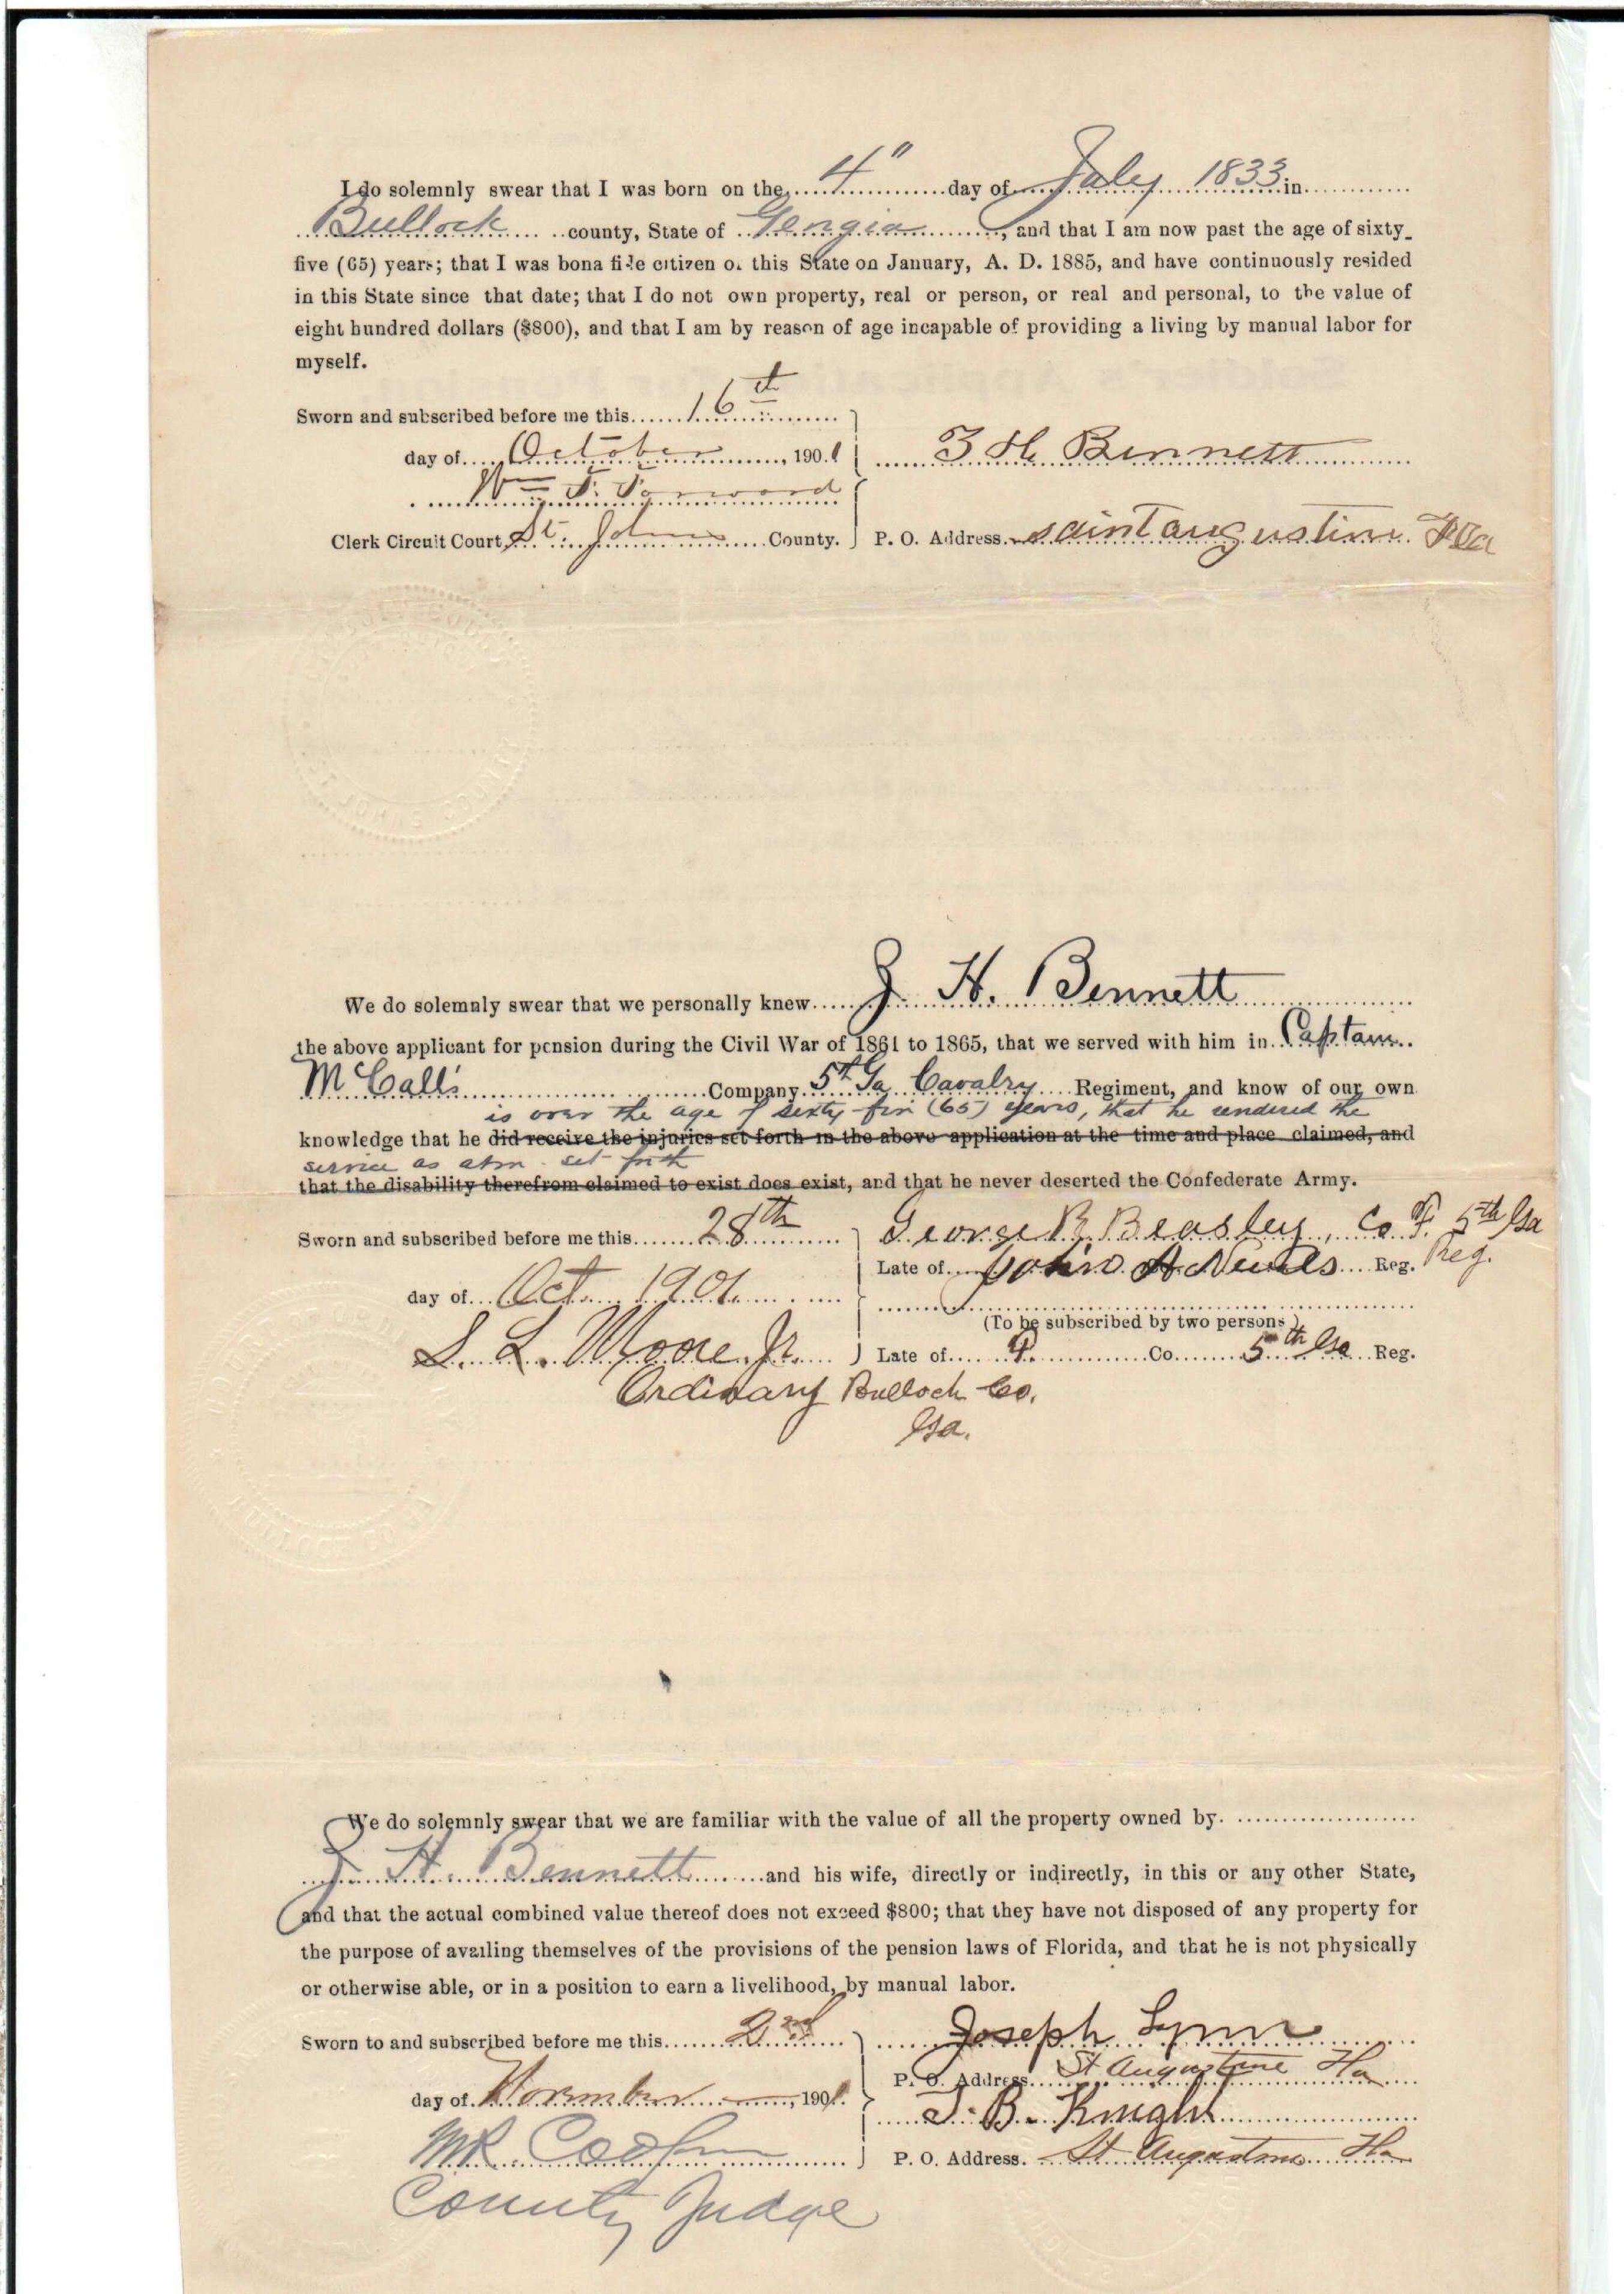 I do solemnly swear that I was born on the 4" day of July 1833 in
Bullock county, State of Georgia, and that I am now past the age of sixty-
five (65) years; that I was bona fide citizen of this State on January, A. D. 1885, and have continuously resided
in this State since that date; that I do not own property, real or person, or real and personal, to the value of
eight hundred dollars ($800), and that I am by reason of age incapable of providing a living by manual labor for
myself.
Sworn and subscribed before me this 16th
day of October, 1901 H Bennett
Wm F. Forward
Clerk Circuit Court, St. Johns County. P. O. Address saint augustine Fla
ST JOHNS COUNTY
We do solemnly swear that we personally knew H. Bennett
the above applicant for pension during the Civil War of 1861 to 1865, that we served with him in Captain
McCall's Company 5th Ga Cavalry Regiment, and know of our own
is over the age of sixty five (65) years, that he rendered the
knowledge that he did receive the injuries set forth in the above application at the time and place claimed, and
service as above set forth
that the disability therefrom claimed to exist does exist, and that he never deserted the Confederate Army.
Sworn and subscribed before me this 28th George R Beasley, Co F. 5th Ga
Late of John A Reg. Reg.
day of Oct. 1901.
(To be subscribed by two persons)
S. L. Moore Jr. Late of Co 5th Ga Reg.
Ordinary Bulloch Co.
Ga.
BULLOCH CO GA
We do solemnly swear that we are familiar with the value of all the property owned by
H. Bennett and his wife, directly or indirectly, in this or any other State,
and that the actual combined value thereof does not exceed $800; that they have not disposed of any property for
the purpose of availing themselves of the provisions of the pension laws of Florida, and that he is not physically
or otherwise able, or in a position to earn a livelihood, by manual labor.
Sworn to and subscribed before me this 2nd Joseph Lynn
P. O. Address St Augustine Fla
day of November, 1901. B. Knight
M R. P. O. Address. St Augustine Fla
County Judge